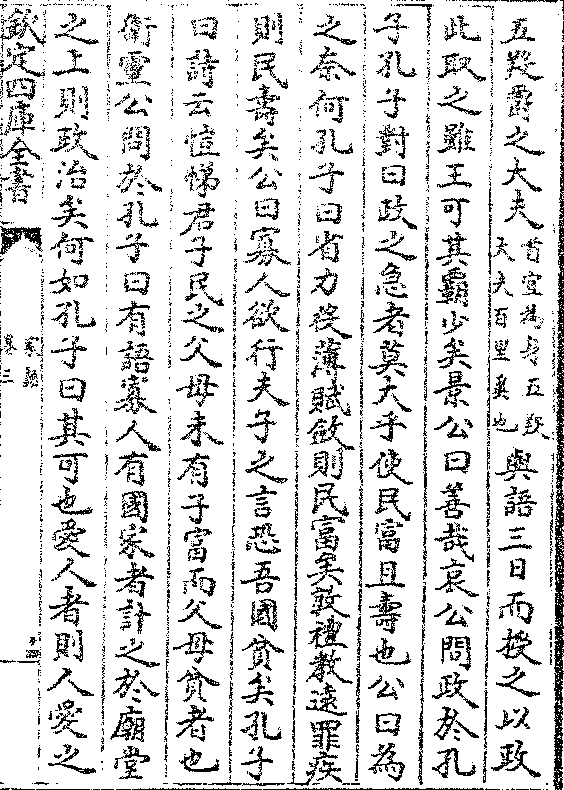 五羖爵之大夫首宜為身五羖大夫百里奚也與語三日而授之以政
此取之雖王可其霸少矣景公曰善哉哀公問政於孔
子孔子對曰政之急者莫大乎使民富且壽也公曰為
之奈何孔子曰省力役薄賦斂則民富矣敦禮教遠罪疾
則民壽矣公曰寡人欲行夫子之言恐吾國貧矣孔子
曰詩云愷悌君子民之父母未有子富而父母貧者也
衛靈公問於孔子曰有語寡人有國家者計之於廟堂
之上則政治矣何如孔子曰其可也愛人者則人愛之
欽定四庫全書
家語
卷三